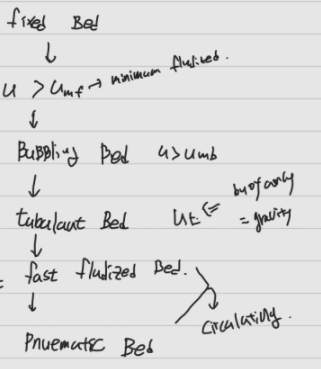 fixed Bed
↓
u > umf → minimum fludized.
↓
Bubbling Bed u>umb
↓
tubulant Bed ut ⇐ buoyancy = gravity
↓
= fast fludized Bed.
↓ circulating.
Pnuematic Bed